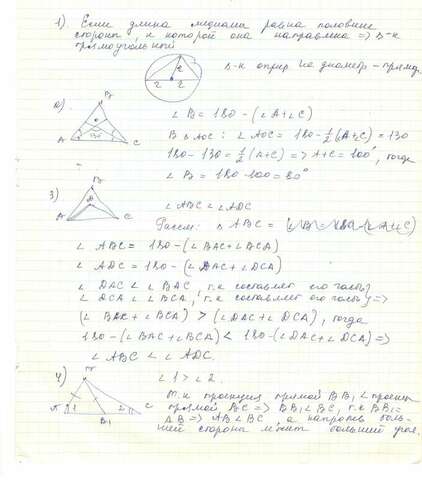 1). Если длина медианы равна половине
стороны, к которой она направлена => Δ-к
прямоугольный
r
2 2
Δ-к опир. на диаметр - прямоуг.
2)
B
O
130°
A C
∠ B = 180 - (∠A+∠C)
В Δ AOC: ∠ AOC = 180 - 1/2(A+C) = 130
180 - 130 = 1/2 (A+C) => A+C = 100°, тогда
∠ B = 180 - 100 = 80°
3)
B
D
A C
∠ ABC < ∠ ADC
Рассм: Δ ABC =
∠ ABC = 180 - (∠ BAC + ∠ BCA)
∠ ADC = 180 - (∠ DAC + ∠ DCA)
∠ DAC < ∠ BAC, т.к составляет его часть
∠ DCA < ∠ BCA, т.к составляет его часть =>
(∠ BAC + ∠ BCA) > (∠ DAC + ∠ DCA), тогда
180 - (∠ BAC + ∠ BCA) < 180 - (∠ DAC + ∠ DCA) =>
∠ ABC < ∠ ADC.
4)
B
A 1 2 C
B1
∠ 1 > ∠ 2.
т.к проекция прямой BB1 < проекц
прямой BC => BB1 < BC, т.к BB1 =
AB => AB < BC, а напротив боль-
шей стороны лежит больший угол.